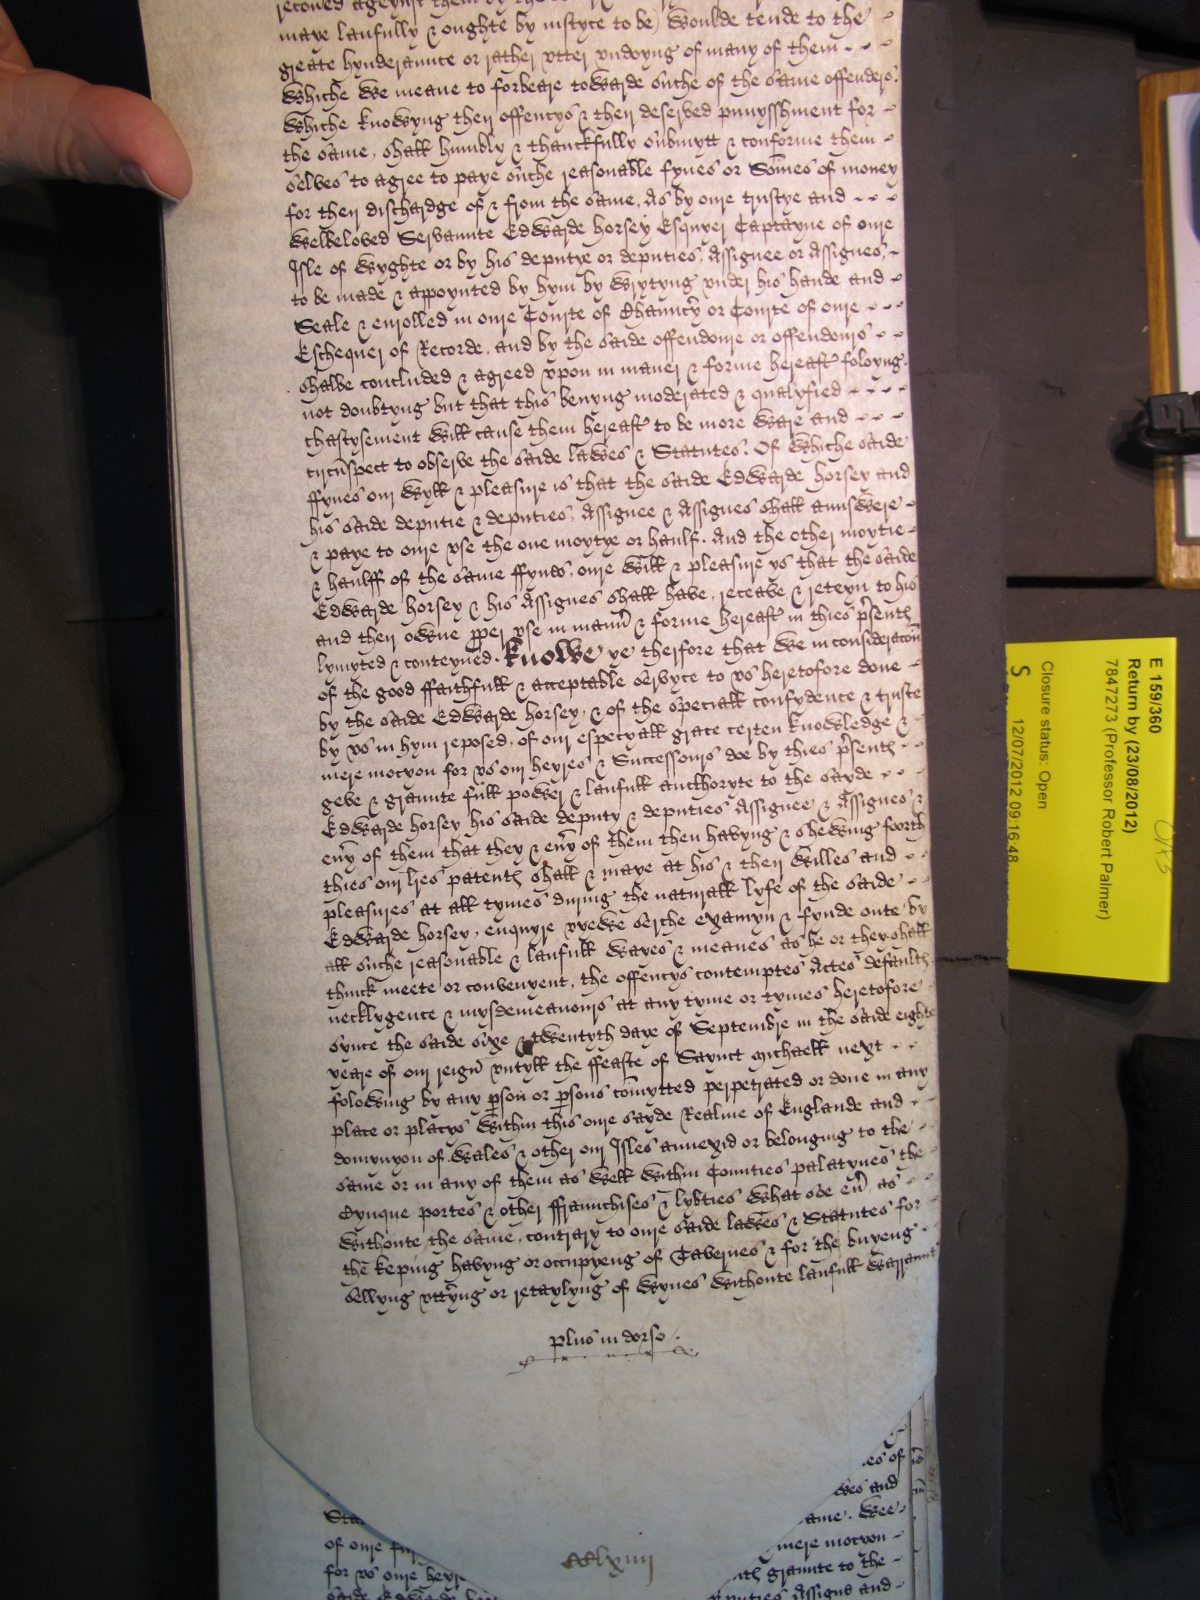 maye laufully & oughte by iustyce to be) Woulde tende to the
greate hynderaunce or rather vtter vndoyng of many of them - - -
Whiche We meane to forbeare toWarde suche of the same offenders.
Whiche knoWyng their offencys & their deserved punysshment for -
the same, shall humbly & thanckfully submytt & conforme them -
selves to agree to paye suche reasonable fynes or Somes of money
for their dischardge of & from the same, As by oure trustye and - - -
Welbeloved Servaunte EdWarde Horsey Esquyer Captayne of oure
Isle of Wyghte or by his deputye or deputies, Assignee or Assignes, -
to be made & appoynted by hym by Wrytyng vnder his hande and -
Seale & enrolled in oure Courte of Chauncȳ or Courte of oure - - -
Eschequer of Recorde, and by the saide offendoure or offendours - -
shalbe concluded & agreed vpon in maner & forme hereaft folowyng.
not doubtyng but that this benyng moderated & qualyfied - - - -
chastysement Will cause them hereaft to be more Ware and - - - -
circūspect to observe the saide laWes & Statutes. Of Whiche saide
ffynes our Wyll & pleasure is that the saide EdWarde Horsey and
his saide deputie & deputies, Assignee & Assignes shall aunsWere -
& paye to oure vse the one moytye or haulf. And the other moytie -
& haulff of the same ffynes, oure Will & pleasure ys that the saide
EdWarde Horsey & his Assignes shall have, receave & reteyn to his
and their oWne ꝓper vse in manñ & forme hereaft in thies p̄sentꝭ
lymyted & conteyned. KnoWe ye therfore that We in consideracōn
of the good ffaithfull & acceptable servyce to vs heretofore done -
by the saide EdWarde Horsey, & of the speciall confydence & truste
by vs in hym reposed, of our especyall grace certen knoWledge & -
mere mocyon for vs our heyres & Successours doe by thies p̄sentꝭ - -
geve & graunte full poWer & laufull aucthoryte to the sayde - - -
EdWarde Horsey his saide deputy & deputies Assignee & Assignes &
eūy of them that they & eūy of them then havyng & sheWing foorth
thies our lr̄es patentꝭ shall & maye at his & their Willes and - -
pleasures at all tymes during the naturall lyfe of the saide - -
EdWarde Horsey, enquyre vyeWe serche examyn & fynde oute by
all suche reasonable & laufull Wayes & meanes as he or they shall
thinck meete or convenyent, the offencys contemptes Actes defaultꝭ
necklygence & mysdemeanours at any tyme or tymes heretofore
synce the saide sixe & tWentyth daye of Septembre in the saide eighte
yeare of our reigñ vntyll the ffeaste of Saynct Michaell next - -
foloWing by any ꝑson or ꝑsons com̄ytted perpetrated or done in any
place or placys Within this oure sayde Realme of Englande and - -
domynyon of Wales & other our Isles annexid or belonging to the -
same or in any of them as Well Within Counties palatynes the
Cynque portes & other ffraunchises & lyb̄ties What soe eū as -
Withoute the same, contrary to oure saide laWes & Statutes for -
the keping havyng or occupyeng of Tavernes & for the buyeng -
sellyng vtt̄yng or retaylyng of Wynes Withoute laufull Warraunt
plus in dorso.
of oure
for vs oure heyr
es of
Wes and
ame. Wee
mere mocyon -
graunte to the -
Assigns and -
cclxiiii
E 159/360
Return by (23/08/2012)
7847273 (Professor Robert Palmer)
Closure status: Open
S 12/07/2012 09:16:48